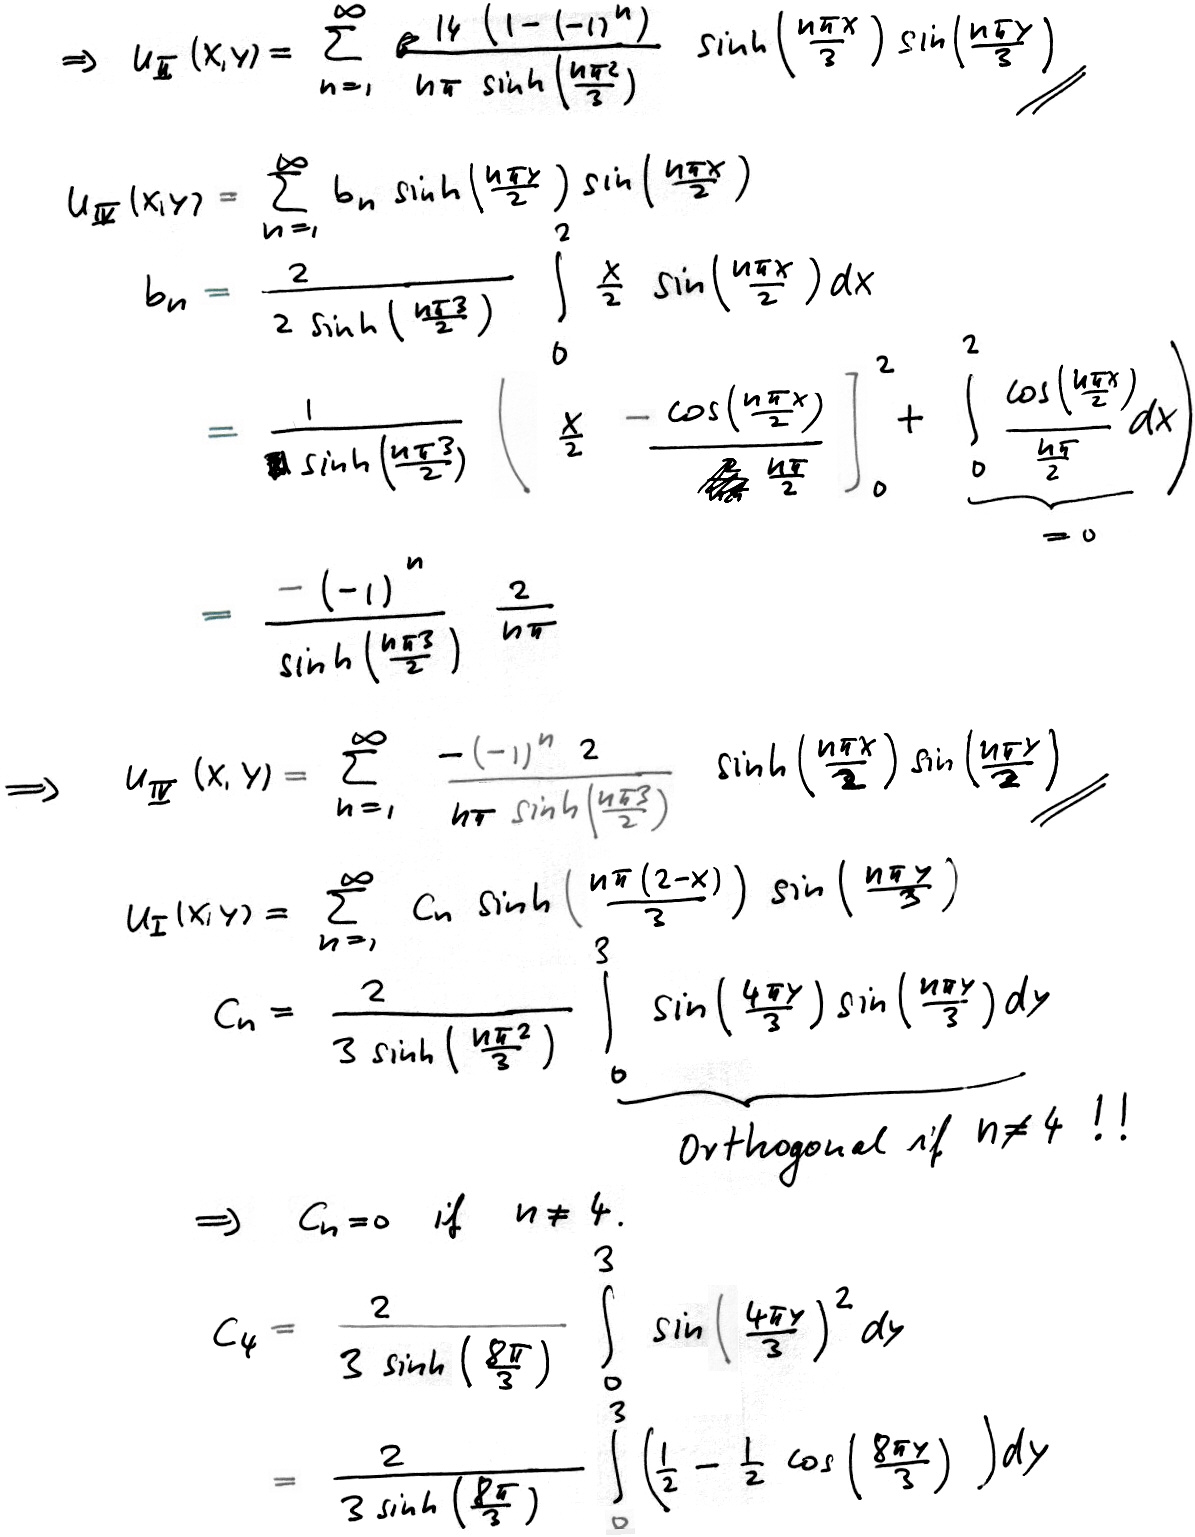 ⇒ u_II (x,y) = ∑_{n=1}^{∞} \frac{14 (1-(-1)^n)}{nπ sinh(\frac{nπ2}{3})} sinh(\frac{nπx}{3}) sin(\frac{nπy}{3}) //
u_IV (x,y) = ∑_{n=1}^{∞} b_n sinh(\frac{nπy}{2}) sin(\frac{nπx}{2})
b_n = \frac{2}{2 sinh(\frac{nπ3}{2})} ∫_0^2 \frac{x}{2} sin(\frac{nπx}{2}) dx
= \frac{1}{sinh(\frac{nπ3}{2})} ( \frac{x}{2} \frac{-cos(\frac{nπx}{2})}{\frac{nπ}{2}} ]_0^2 + ∫_0^2 \frac{cos(\frac{nπx}{2})}{\frac{nπ}{2}} dx )
= 0
= \frac{-(-1)^n}{sinh(\frac{nπ3}{2})} \frac{2}{nπ}
⇒ u_IV (x,y) = ∑_{n=1}^{∞} \frac{-(-1)^n 2}{nπ sinh(\frac{nπ3}{2})} sinh(\frac{nπx}{2}) sin(\frac{nπy}{2}) //
u_I (x,y) = ∑_{n=1}^{∞} c_n sinh(\frac{nπ(2-x)}{3}) sin(\frac{nπy}{3})
c_n = \frac{2}{3 sinh(\frac{nπ2}{3})} ∫_0^3 sin(\frac{4πy}{3}) sin(\frac{nπy}{3}) dy
Orthogonal if n≠4 !!
⇒ c_n = 0 if n ≠ 4.
c_4 = \frac{2}{3 sinh(\frac{8π}{3})} ∫_0^3 sin(\frac{4πy}{3})^2 dy
= \frac{2}{3 sinh(\frac{8π}{3})} ∫_0^3 (\frac{1}{2} - \frac{1}{2} cos(\frac{8πy}{3})) dy